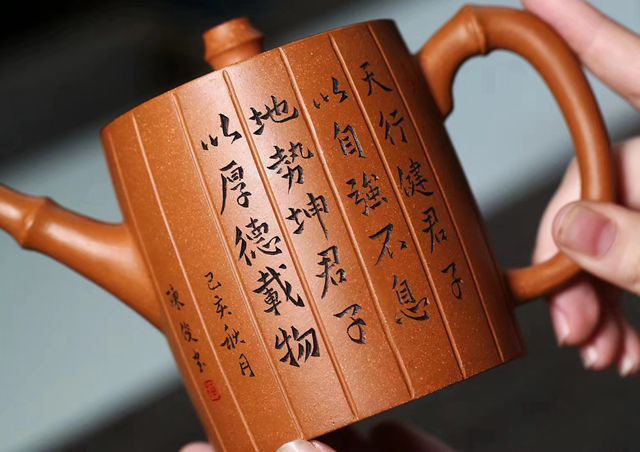 天行健君子
以自強不息
地勢坤君子
以厚德載物
己亥秋月
陳俊